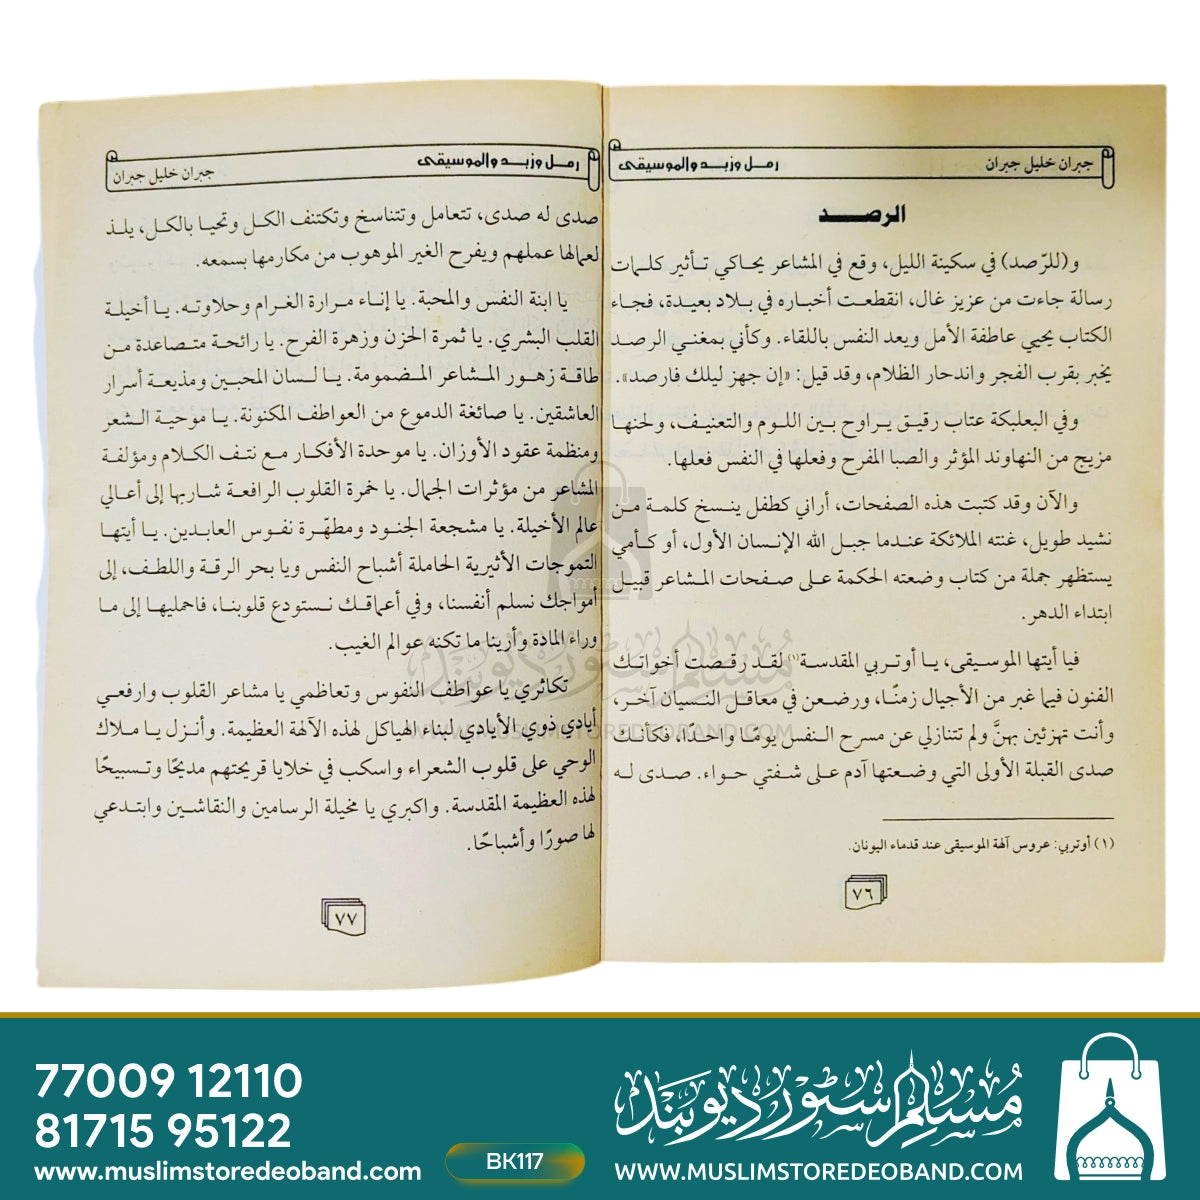 جبران خليل جبران
رمل وزبد والموسيقى
الرصد
و(للرّصد) في سكينة الليل، وقع في المشاعر يحاكي تأثير كلمات
رسالة جاءت من عزيز غال، انقطعت أخباره في بلاد بعيدة، فجاء
الكتاب يحيي عاطفة الأمل ويعد النفس باللقاء. وكأني بمغني الرصد
يخبر بقرب الفجر واندحار الظلام، وقد قيل: «إن جهز ليلك فارصد».
وفي البعلبكة عتاب رقيق يراوح بين اللوم والتعنيف، ولحنها
مزيج من النهاوند المؤثر والصبا المفرح وفعلها في النفس فعلها.
والآن وقد كتبت هذه الصفحات، أراني كطفل ينسخ كلمة من
نشيد طويل، غنته الملائكة عندما جبل الله الإنسان الأول، أو كأمي
يستظهر جملة من كتاب وضعته الحكمة على صفحات المشاعر قبيل
ابتداء الدهر.
فيا أيتها الموسيقى، يا أوتربي المقدسة(١) لقد رقصت أخواتك
الفنون فيما غبر من الأجيال زمنًا، ورضعن في معاقل النسيان آخر،
وأنت تهزئين بهنَّ ولم تتنازلي عن مسرح النفس يومًا واحدًا، فكأنك
صدى القبلة الأولى التي وضعتها آدم على شفتي حواء. صدى له
(١) أوتربي: عروس آلهة الموسيقى عند قدماء اليونان.
٧٦
رمل وزبد والموسيقى
جبران خليل جبران
صدى له صدى، تتعامل وتتناسخ وتكتنف الكل وتحيا بالكل، يلذ
لعمالها عملهم ويفرح الغير الموهوب من مكارمها بسمعه.
يا ابنة النفس والمحبة. يا إناء مرارة الغرام وحلاوته. يا أخيلة
القلب البشري. يا ثمرة الحزن وزهرة الفرح. يا رائحة متصاعدة من
طاقة زهور المشاعر المضمومة. يا لسان المحبين ومذيعة أسرار
العاشقين. يا صائغة الدموع من العواطف المكنونة. يا موحية الشعر
ومنظمة عقود الأوزان. يا موحدة الأفكار مع نتف الكلام ومؤلفة
المشاعر من مؤثرات الجمال. يا خمرة القلوب الرافعة شاربها إلى أعالي
عالم الأخيلة. يا مشجعة الجنود ومطهّرة نفوس العابدين. يا أيتها
التموجات الأثيرية الحاملة أشباح النفس ويا بحر الرقة واللطف، إلى
أمواجك نسلم أنفسنا، وفي أعماقك نستودع قلوبنا، فاحمليها إلى ما
وراء المادة وأرينا ما تكنه عوالم الغيب.
تكاثري يا عواطف النفوس وتعاظمي يا مشاعر القلوب وارفعي
أيادي ذوي الأيادي لبناء الهياكل لهذه الآلهة العظيمة. وأنزل يا ملاك
الوحي على قلوب الشعراء واسكب في خلايا قريحتهم مديحًا وتسبيحًا
لهذه العظيمة المقدسة. واكبري يا مخيلة الرسامين والنقاشين وابتدعي
لها صورًا وأشباحًا.
٧٧
مسلم سٹور دیوبند
WWW.MUSLIMSTOREDEOBAND.COM
77009 12110
81715 95122
www.muslimstoredeoband.com
BK117
مسلم سٹور دیوبند
WWW.MUSLIMSTOREDEOBAND.COM